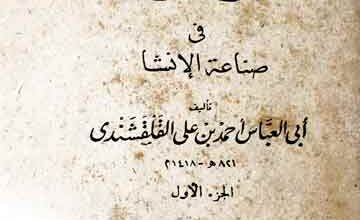 فى
صناعة الإنشا
تأليف
أبى العباس أحمد بن على القلقشندى
٨٢١هـ - ١٤١٨م
الجزء الأول